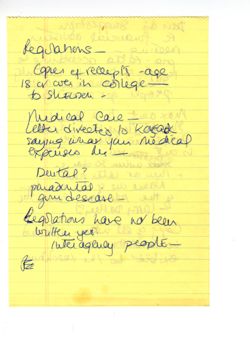 Regulations —
Copies of receipts - age
18 or over in college —
to
Medical Care —
letter directed to
saying what your medical
expenses are —
Dental?
paradental
gum disease —
Regulations have not been
written yet
interagency people —